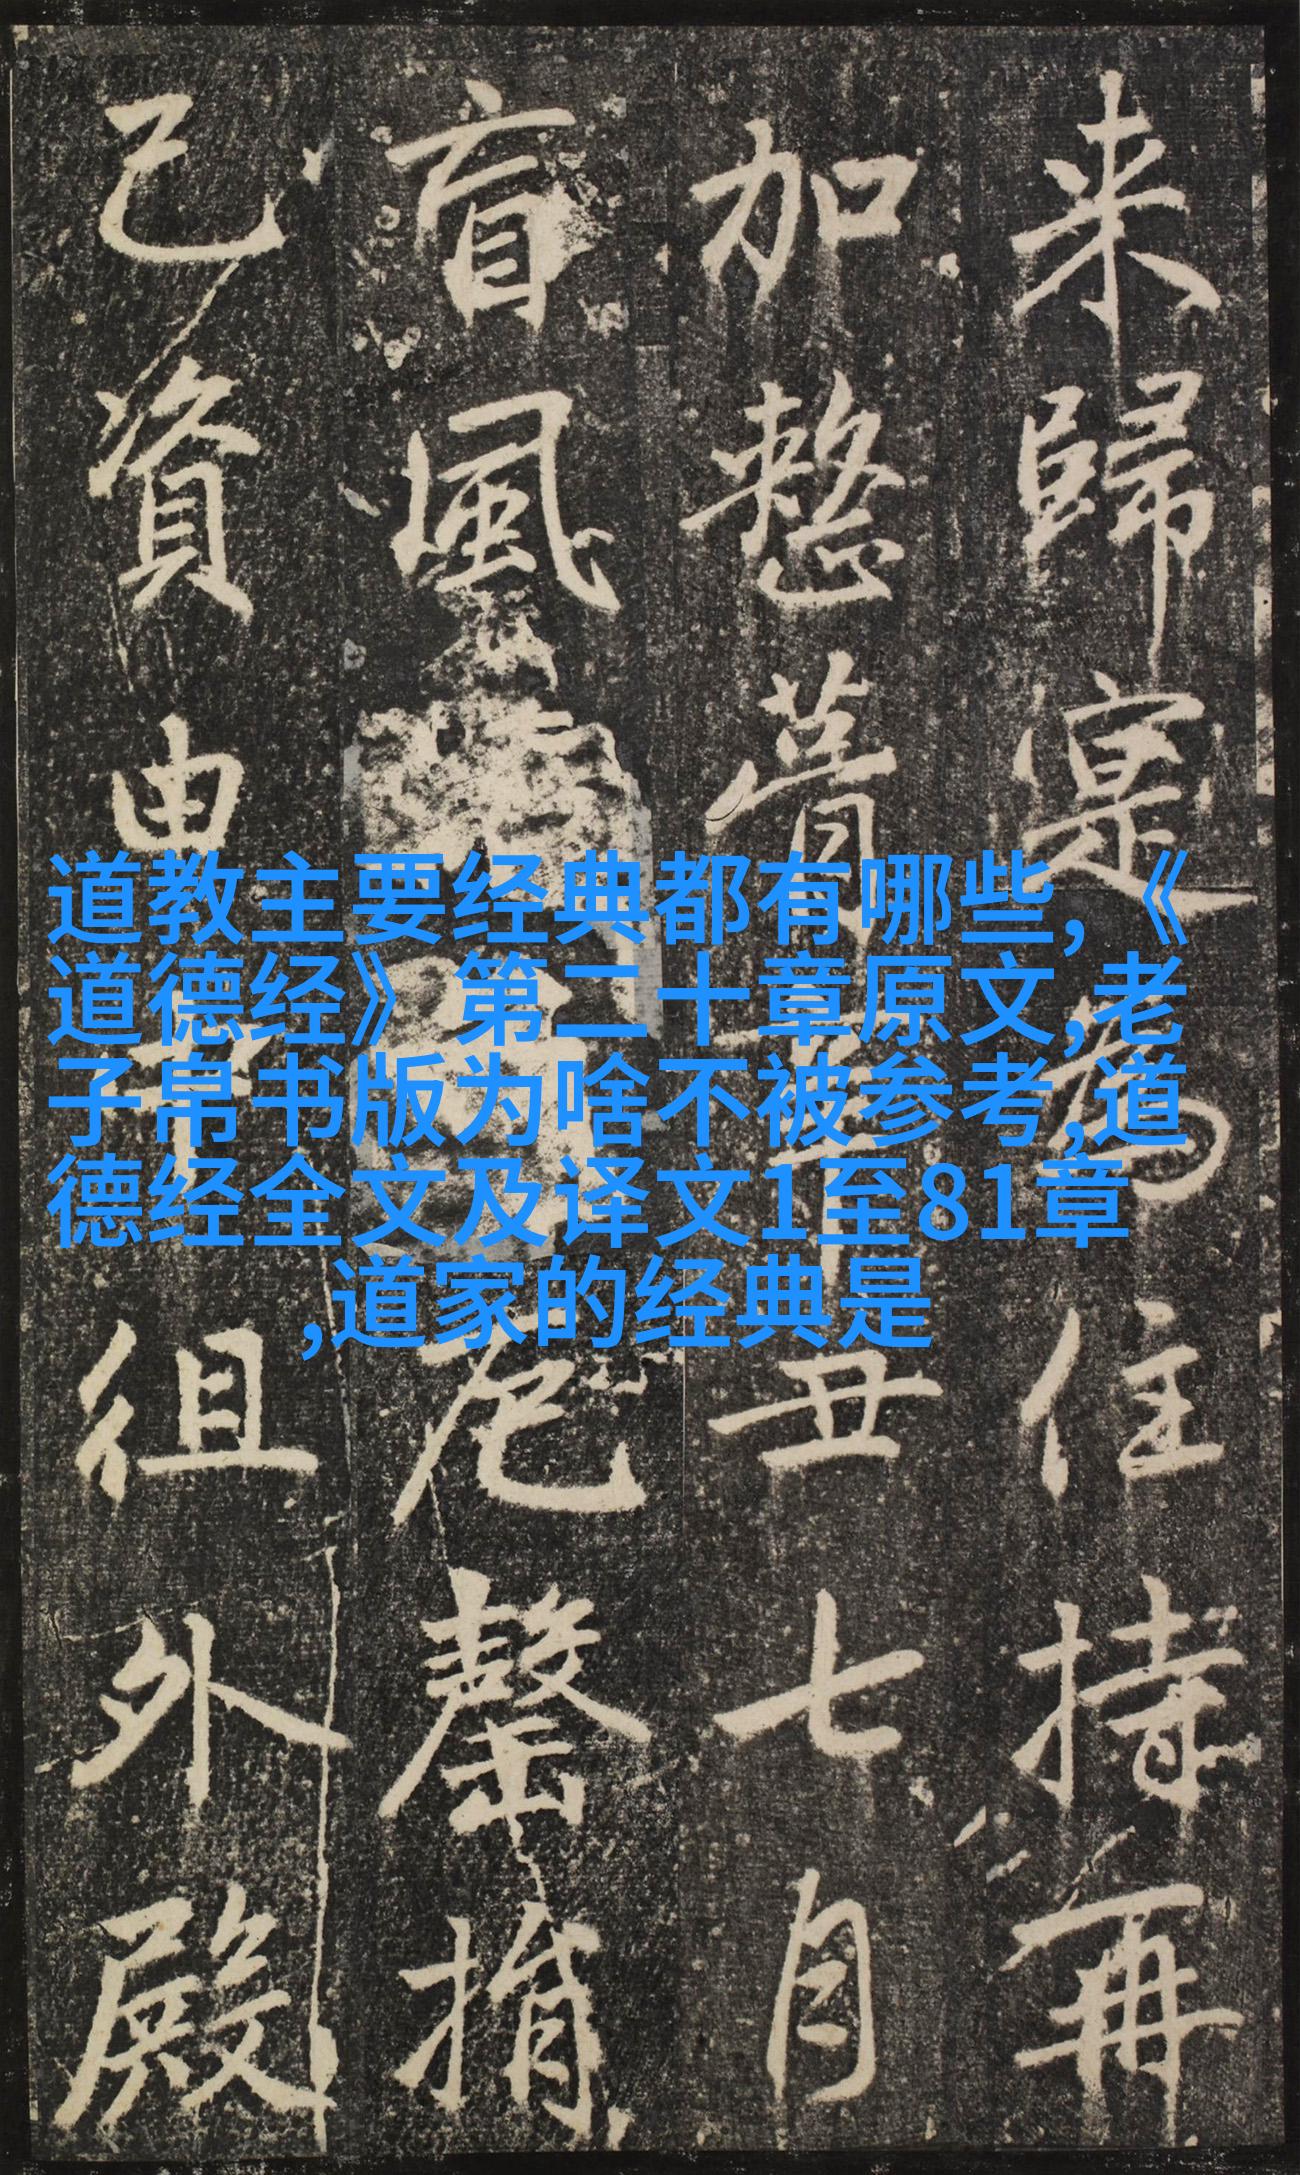 来歸寔為住持再
加整葺丑七月
盲風尼罄捐
己資由徂外殿
道教主要经典都有哪些,《
道德经》第二十章原文,老
子帛书版为啥不被参考,道
德经全文及译文1至81章
,道家的经典是